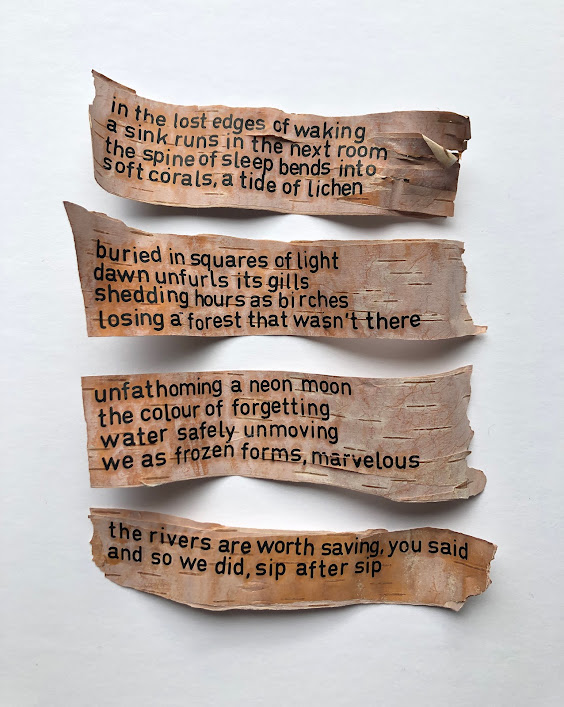 in the lost edges of waking
a sink runs in the next room
the spine of sleep bends into
soft corals, a tide of lichen
buried in squares of light
dawn unfurls its gills
shedding hours as birches
losing a forest that wasn't there
unfathoming a neon moon
the colour of forgetting
water safely unmoving
we as frozen forms, marvelous
the rivers are worth saving, you said
and so we did, sip after sip